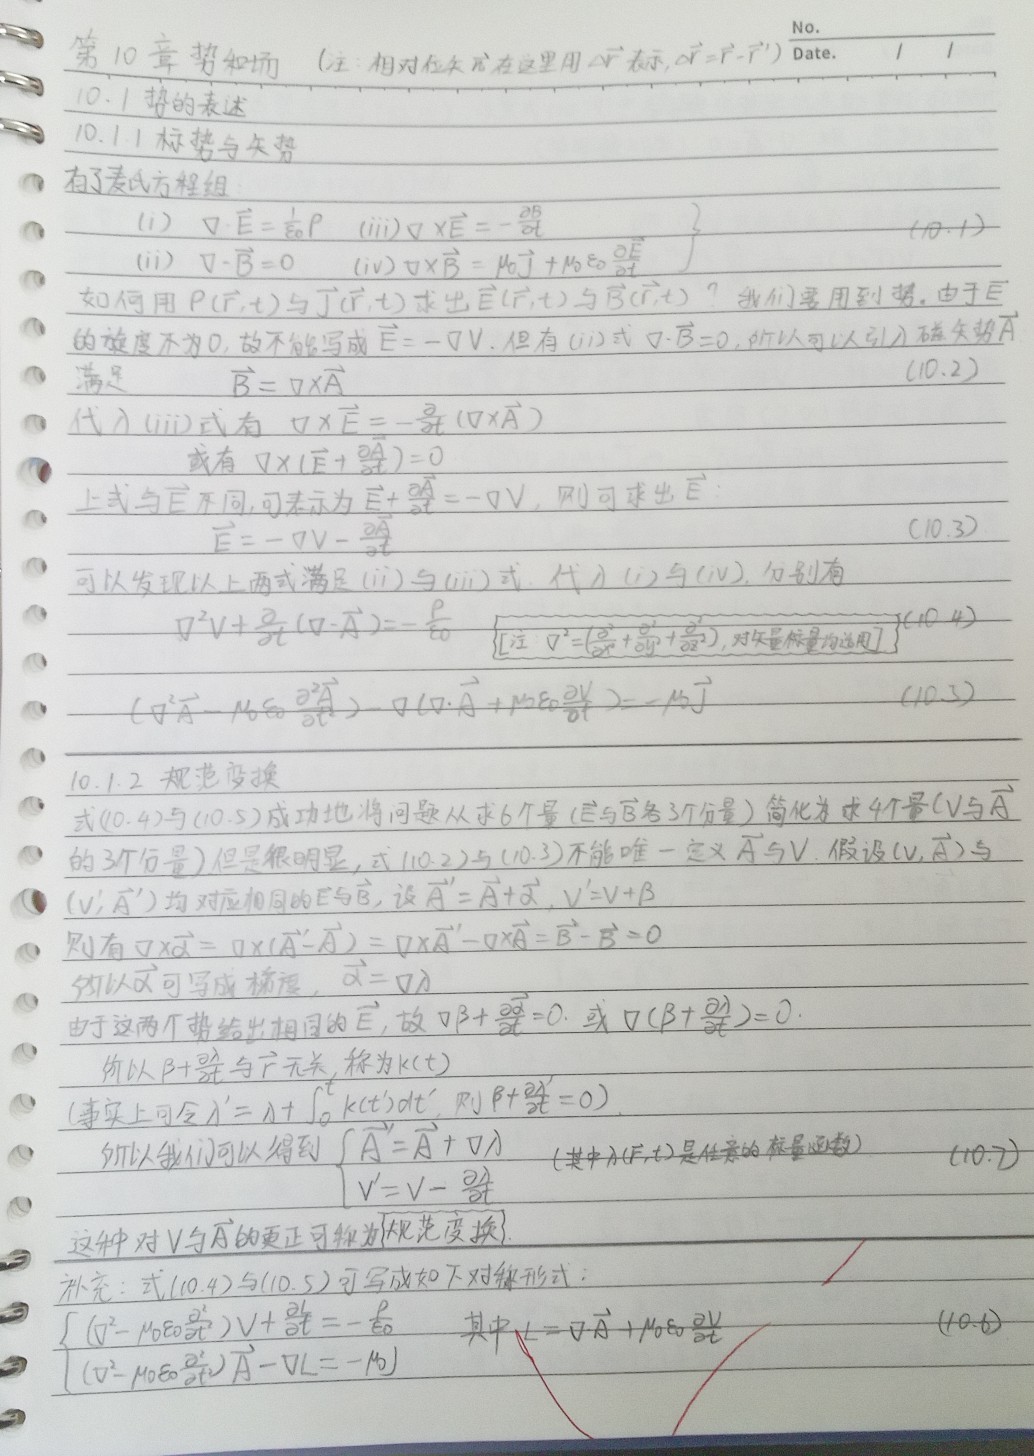 No.
Date. / /
第10章 势和场 (注:相对位矢r在这里用Δr⃗表示,Δr⃗=r⃗-r⃗')
10.1 势的表述
10.1.1 标势与矢势
有了麦氏方程组:
(i) ∇·E⃗=1/ε₀ ρ (iii) ∇×E⃗=-∂B/∂t
(ii) ∇·B⃗=0 (iv) ∇×B⃗=μ₀J⃗+μ₀ε₀ ∂E⃗/∂t } (10.1)
如何用ρ(r⃗,t)与J⃗(r⃗,t)求出E⃗(r⃗,t)与B⃗(r⃗,t)?我们要用到势。由于E⃗
的旋度不为0,故不能写成E⃗=-∇V.但有(ii)式∇·B⃗=0,所以可以引入磁矢势A⃗
满足 B⃗=∇×A⃗ (10.2)
代入(iii)式有 ∇×E⃗=-∂/∂t(∇×A⃗)
或有 ∇×(E⃗+∂A⃗/∂t)=0
上式与E⃗不同,可表示为E⃗+∂A⃗/∂t=-∇V,则可求出E⃗:
E⃗=-∇V-∂A⃗/∂t (10.3)
可以发现以上两式满足(ii)与(iii)式.代入(i)与(iv),分别有
∇²V+∂/∂t(∇·A⃗)=-ρ/ε₀ [注 ∇²=(∂²/∂x²+∂²/∂y²+∂²/∂z²),对矢量标量均适用] (10.4)
(∇²A⃗-μ₀ε₀ ∂²A⃗/∂t²)-∇(∇·A⃗+μ₀ε₀ ∂V/∂t)=-μ₀J⃗ (10.5)
10.1.2 规范变换
式(10.4)与(10.5)成功地将问题从求6个量(E⃗与B⃗各3个分量)简化为求4个量(V与A⃗
的3个分量)但是很明显,式(10.2)与(10.3)不能唯一定义A⃗与V.假设(V,A⃗)与
(V',A⃗')均对应相同的E⃗与B⃗,设A⃗'=A⃗+α⃗,V'=V+β
则有∇×α⃗=∇×(A⃗'-A⃗)=∇×A⃗'-∇×A⃗=B⃗-B⃗=0
所以α⃗可写成梯度,α⃗=∇λ
由于这两个势给出相同的E⃗,故∇β+∂α⃗/∂t=0.或∇(β+∂λ/∂t)=0.
所以β+∂λ/∂t与r⃗无关,称为k(t)
(事实上可令λ'=λ+∫₀ᵗk(t')dt',则β+∂λ'/∂t=0)
所以我们可以得到 { A⃗'=A⃗+∇λ (其中λ(r⃗,t)是任意的标量函数) (10.7)
V'=V-∂λ/∂t
这种对V与A⃗的更正可称为规范变换.
补充:式(10.4)与(10.5)可写成如下对称形式:
{ (∇²-μ₀ε₀ ∂²/∂t²)V+∂L/∂t=-ρ/ε₀ 其中L=∇·A⃗+μ₀ε₀ ∂V/∂t (10.6)
(∇²-μ₀ε₀ ∂²/∂t²)A⃗-∇L=-μ₀J